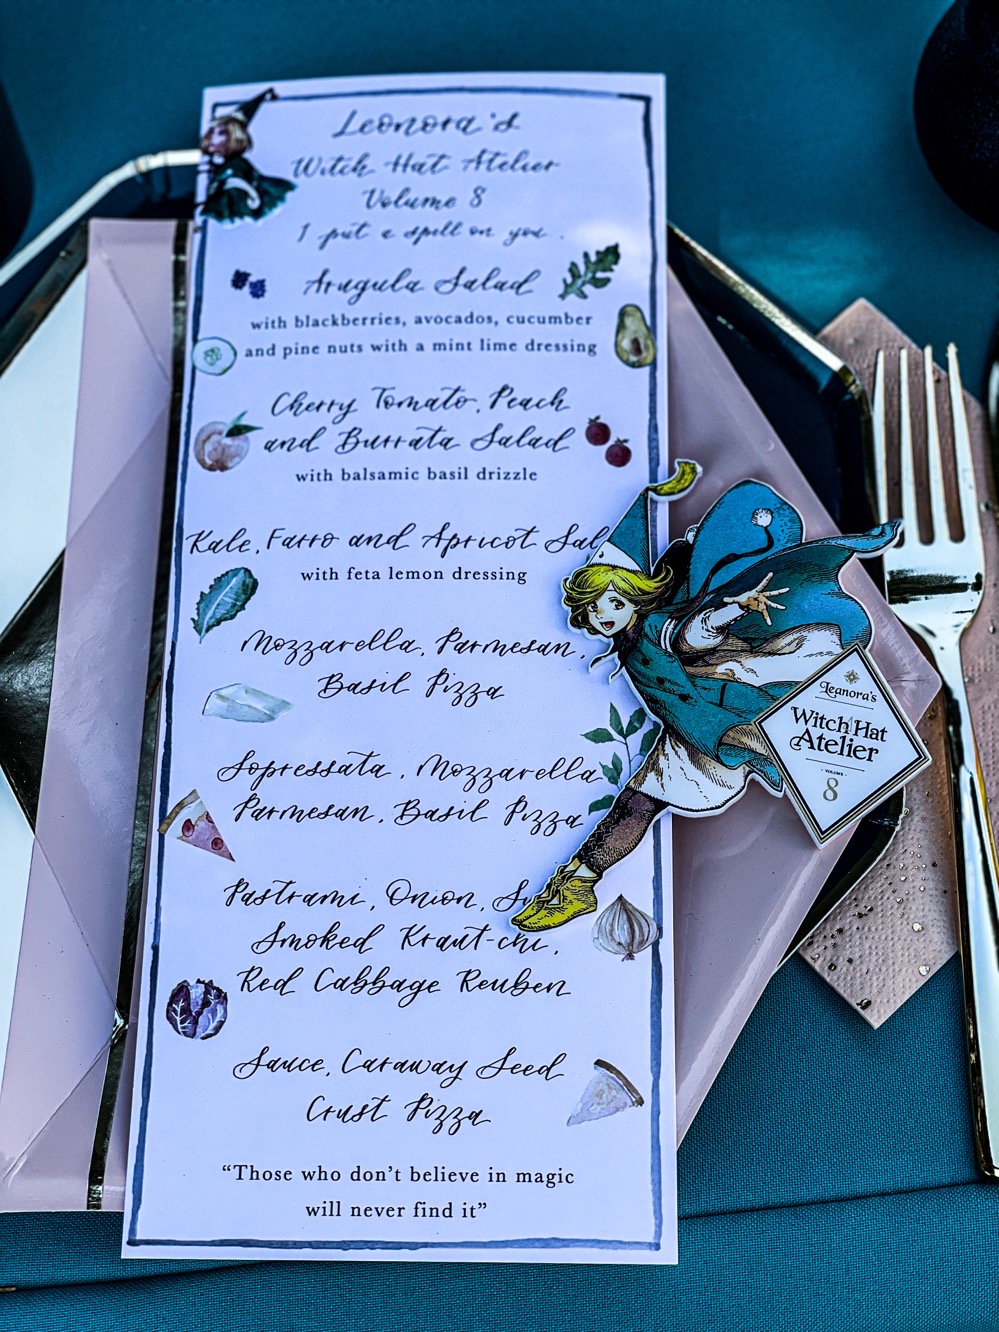 Leonora's
Witch Hat Atelier
Volume 8
I put a spell on you.
Arugula Salad
with blackberries, avocados, cucumber
and pine nuts with a mint lime dressing
Cherry Tomato, Peach
and Burrata Salad
with balsamic basil drizzle
Kale, Farro and Apricot Sal
with feta lemon dressing
Mozzarella, Parmesan,
Basil Pizza
Sopressata, Mozzarella
Parmesan, Basil Pizza
Pastrami, Onion,
Smoked Kraut-chi,
Red Cabbage Reuben
Sauce, Caraway Seed
Crust Pizza
"Those who don't believe in magic
will never find it"
Leanora's
Witch Hat
Atelier
VOLUME
8